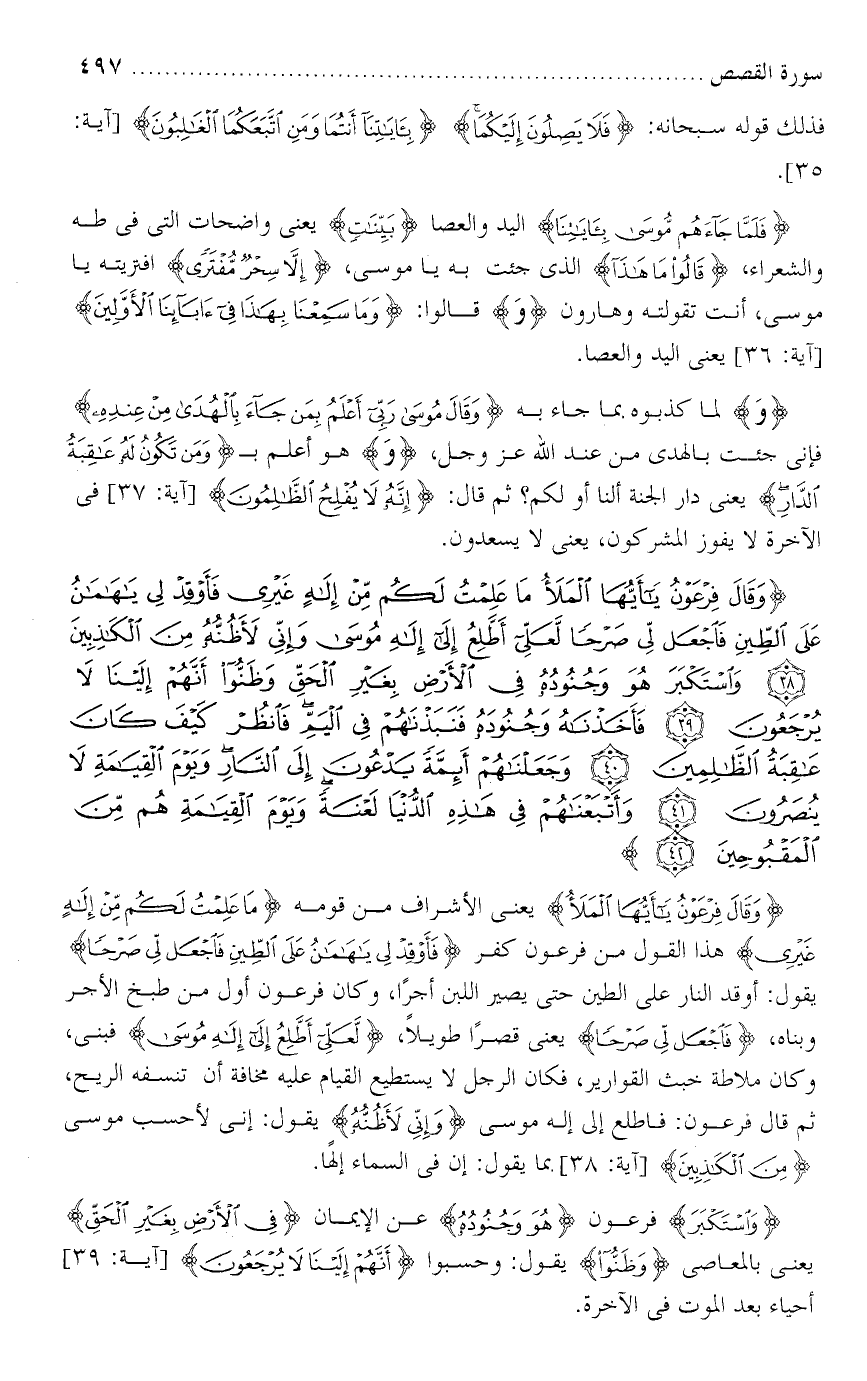 سورة القصص ........................................................................ ٤٩٧
فذلك قوله سبحانه: ﴿فَلَا يَصِلُونَ إِلَيْكُمَاۚ﴾ ﴿بِـَٔايَـٰتِنَآ أَنتُمَا وَمَنِ ٱتَّبَعَكُمَا ٱلْغَـٰلِبُونَ﴾ [آية:
٣٥].
﴿فَلَمَّا جَآءَهُم مُّوسَىٰ بِـَٔايَـٰتِنَا﴾ اليد والعصا ﴿بَيِّنَـٰتٍ﴾ يعنى واضحات التى فى طه
والشعراء، ﴿قَالُوا۟ مَا هَـٰذَآ﴾ الذى جئت به يا موسى، ﴿إِلَّا سِحْرٌ مُّفْتَرًى﴾ افتريته يا
موسى، أنت تقولته وهارون ﴿وَ﴾ قالوا: ﴿وَمَا سَمِعْنَا بِهَـٰذَا فِىٓ ءَابَآئِنَا ٱلْأَوَّلِينَ﴾
[آية: ٣٦] يعنى اليد والعصا.
﴿وَ﴾ لما كذبوه بما جاء به ﴿وَقَالَ مُوسَىٰ رَبِّىٓ أَعْلَمُ بِمَن جَآءَ بِٱلْهُدَىٰ مِنْ عِندِهِۦ﴾
فإنى جئت بالهدى من عند الله عز وجل، ﴿وَ﴾ هو أعلم بـ ﴿وَمَن تَكُونُ لَهُۥ عَـٰقِبَةُ
ٱلدَّارِۖ﴾ يعنى دار الجنة ألنا أو لكم؟ ثم قال: ﴿إِنَّهُۥ لَا يُفْلِحُ ٱلظَّـٰلِمُونَ﴾ [آية: ٣٧] فى
الآخرة لا يفوز المشركون، يعنى لا يسعدون.
﴿وَقَالَ فِرْعَوْنُ يَـٰٓأَيُّهَا ٱلْمَلَأُ مَا عَلِمْتُ لَكُم مِّنْ إِلَـٰهٍ غَيْرِى فَأَوْقِدْ لِى يَـٰهَـٰمَـٰنُ
عَلَى ٱلطِّينِ فَٱجْعَل لِّى صَرْحًا لَّعَلِّىٓ أَطَّلِعُ إِلَىٰٓ إِلَـٰهِ مُوسَىٰ وَإِنِّى لَأَظُنُّهُۥ مِنَ ٱلْكَـٰذِبِينَ
٣٨ وَٱسْتَكْبَرَ هُوَ وَجُنُودُهُۥ فِى ٱلْأَرْضِ بِغَيْرِ ٱلْحَقِّ وَظَنُّوٓا۟ أَنَّهُمْ إِلَيْنَا لَا
يُرْجَعُونَ ٣٩ فَأَخَذْنَـٰهُ وَجُنُودَهُۥ فَنَبَذْنَـٰهُمْ فِى ٱلْيَمِّۖ فَٱنظُرْ كَيْفَ كَانَ
عَـٰقِبَةُ ٱلظَّـٰلِمِينَ ٤٠ وَجَعَلْنَـٰهُمْ أَئِمَّةً يَدْعُونَ إِلَى ٱلنَّارِۖ وَيَوْمَ ٱلْقِيَـٰمَةِ لَا
يُنصَرُونَ ٤١ وَأَتْبَعْنَـٰهُمْ فِى هَـٰذِهِ ٱلدُّنْيَا لَعْنَةًۖ وَيَوْمَ ٱلْقِيَـٰمَةِ هُم مِّنَ
ٱلْمَقْبُوحِينَ ٤٢﴾
﴿وَقَالَ فِرْعَوْنُ يَـٰٓأَيُّهَا ٱلْمَلَأُ﴾ يعنى الأشراف من قومه ﴿مَا عَلِمْتُ لَكُم مِّنْ إِلَـٰهٍ
غَيْرِى﴾ هذا القول من فرعون كفر ﴿فَأَوْقِدْ لِى يَـٰهَـٰمَـٰنُ عَلَى ٱلطِّينِ فَٱجْعَل لِّى صَرْحًا﴾
يقول: أوقد النار على الطين حتى يصير اللبن أجرًا، وكان فرعون أول من طبخ الأجر
وبناه، ﴿فَٱجْعَل لِّى صَرْحًا﴾ يعنى قصرًا طويلاً، ﴿لَّعَلِّىٓ أَطَّلِعُ إِلَىٰٓ إِلَـٰهِ مُوسَىٰ﴾ فبنى،
وكان ملاطة خبث القوارير، فكان الرجل لا يستطيع القيام عليه مخافة أن تنسفه الريح،
ثم قال فرعون: فاطلع إلى إله موسى ﴿وَإِنِّى لَأَظُنُّهُۥ﴾ يقول: إنى لأحسب موسى
﴿مِنَ ٱلْكَـٰذِبِينَ﴾ [آية: ٣٨] بما يقول: إن فى السماء إلهًا.
﴿وَٱسْتَكْبَرَ﴾ فرعون ﴿هُوَ وَجُنُودُهُۥ﴾ عن الإيمان ﴿فِى ٱلْأَرْضِ بِغَيْرِ ٱلْحَقِّ﴾
يعنى بالمعاصى ﴿وَظَنُّوٓا۟﴾ يقول: وحسبوا ﴿أَنَّهُمْ إِلَيْنَا لَا يُرْجَعُونَ﴾ [آية: ٣٩]
أحياء بعد الموت فى الآخرة.